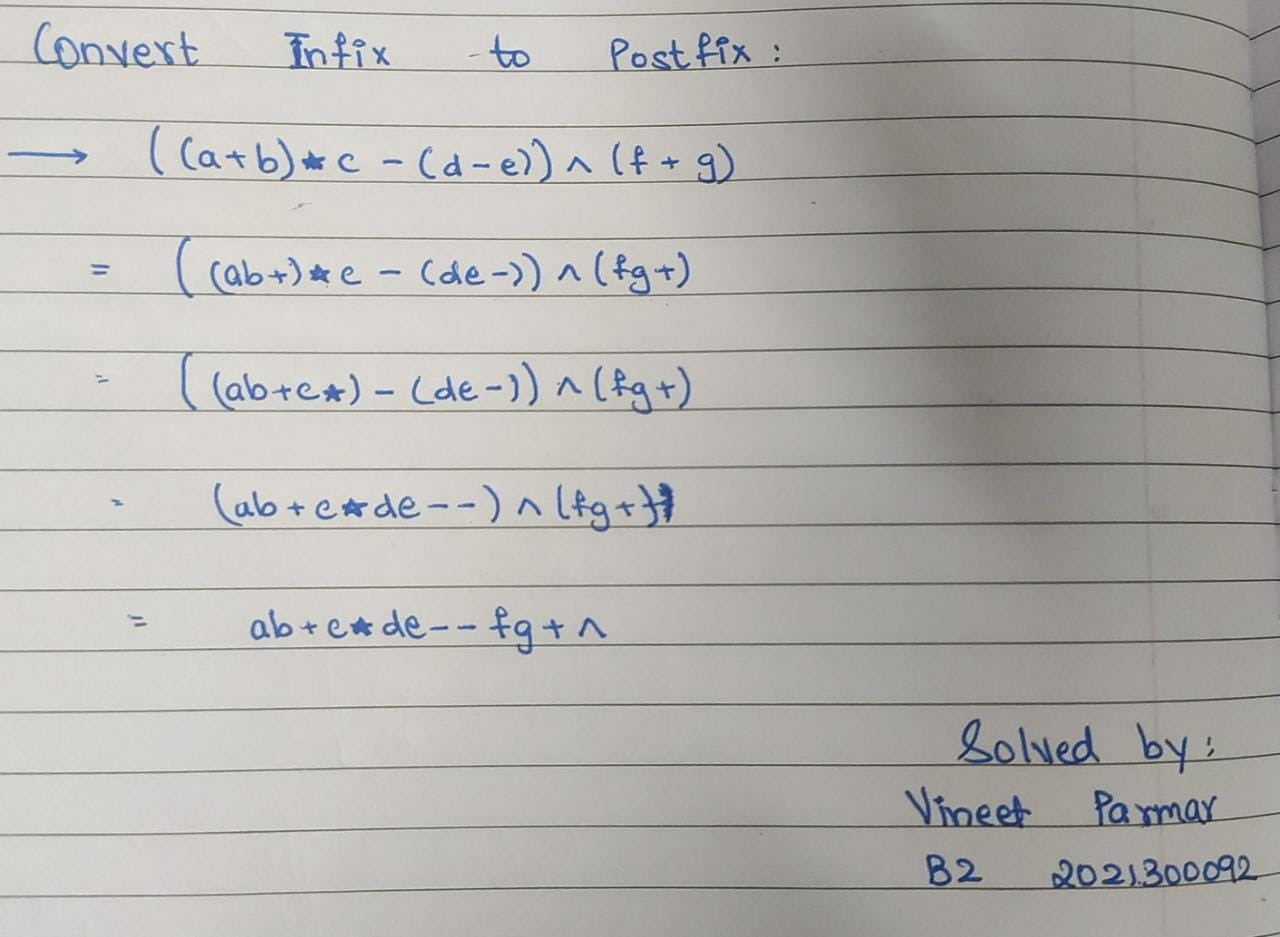 Convert Infix to Postfix:
→ ((a+b)*c - (d-e)) ^ (f + g)
= ((ab+)*c - (de-)) ^ (fg+)
= ((ab+c*) - (de-)) ^ (fg+)
= (ab+c*de--) ^ (fg+)
= ab+c*de--fg+^
Solved by:
Vineet Parmar
B2 2021300092